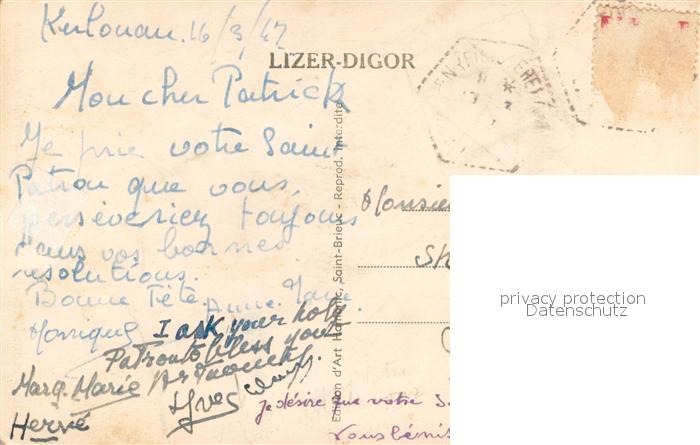 Kerlouan. 16/3/47
LIZER-DIGOR
Mon cher Patrick
Je prie votre Saint
Patron que vous
perséveriez toujours
dans vos bonnes
résolutions.
Bonne Fête.
Anne Marie
Monique
I ask your holy
Patron to bless your
Marg. Marie
Yves
Hervé
Je désire que votre S
vous bénis
Edition d'Art Hamonic, Saint-Brieuc - Reprod. Interdite
Monsie
Sh
privacy protection
Datenschutz